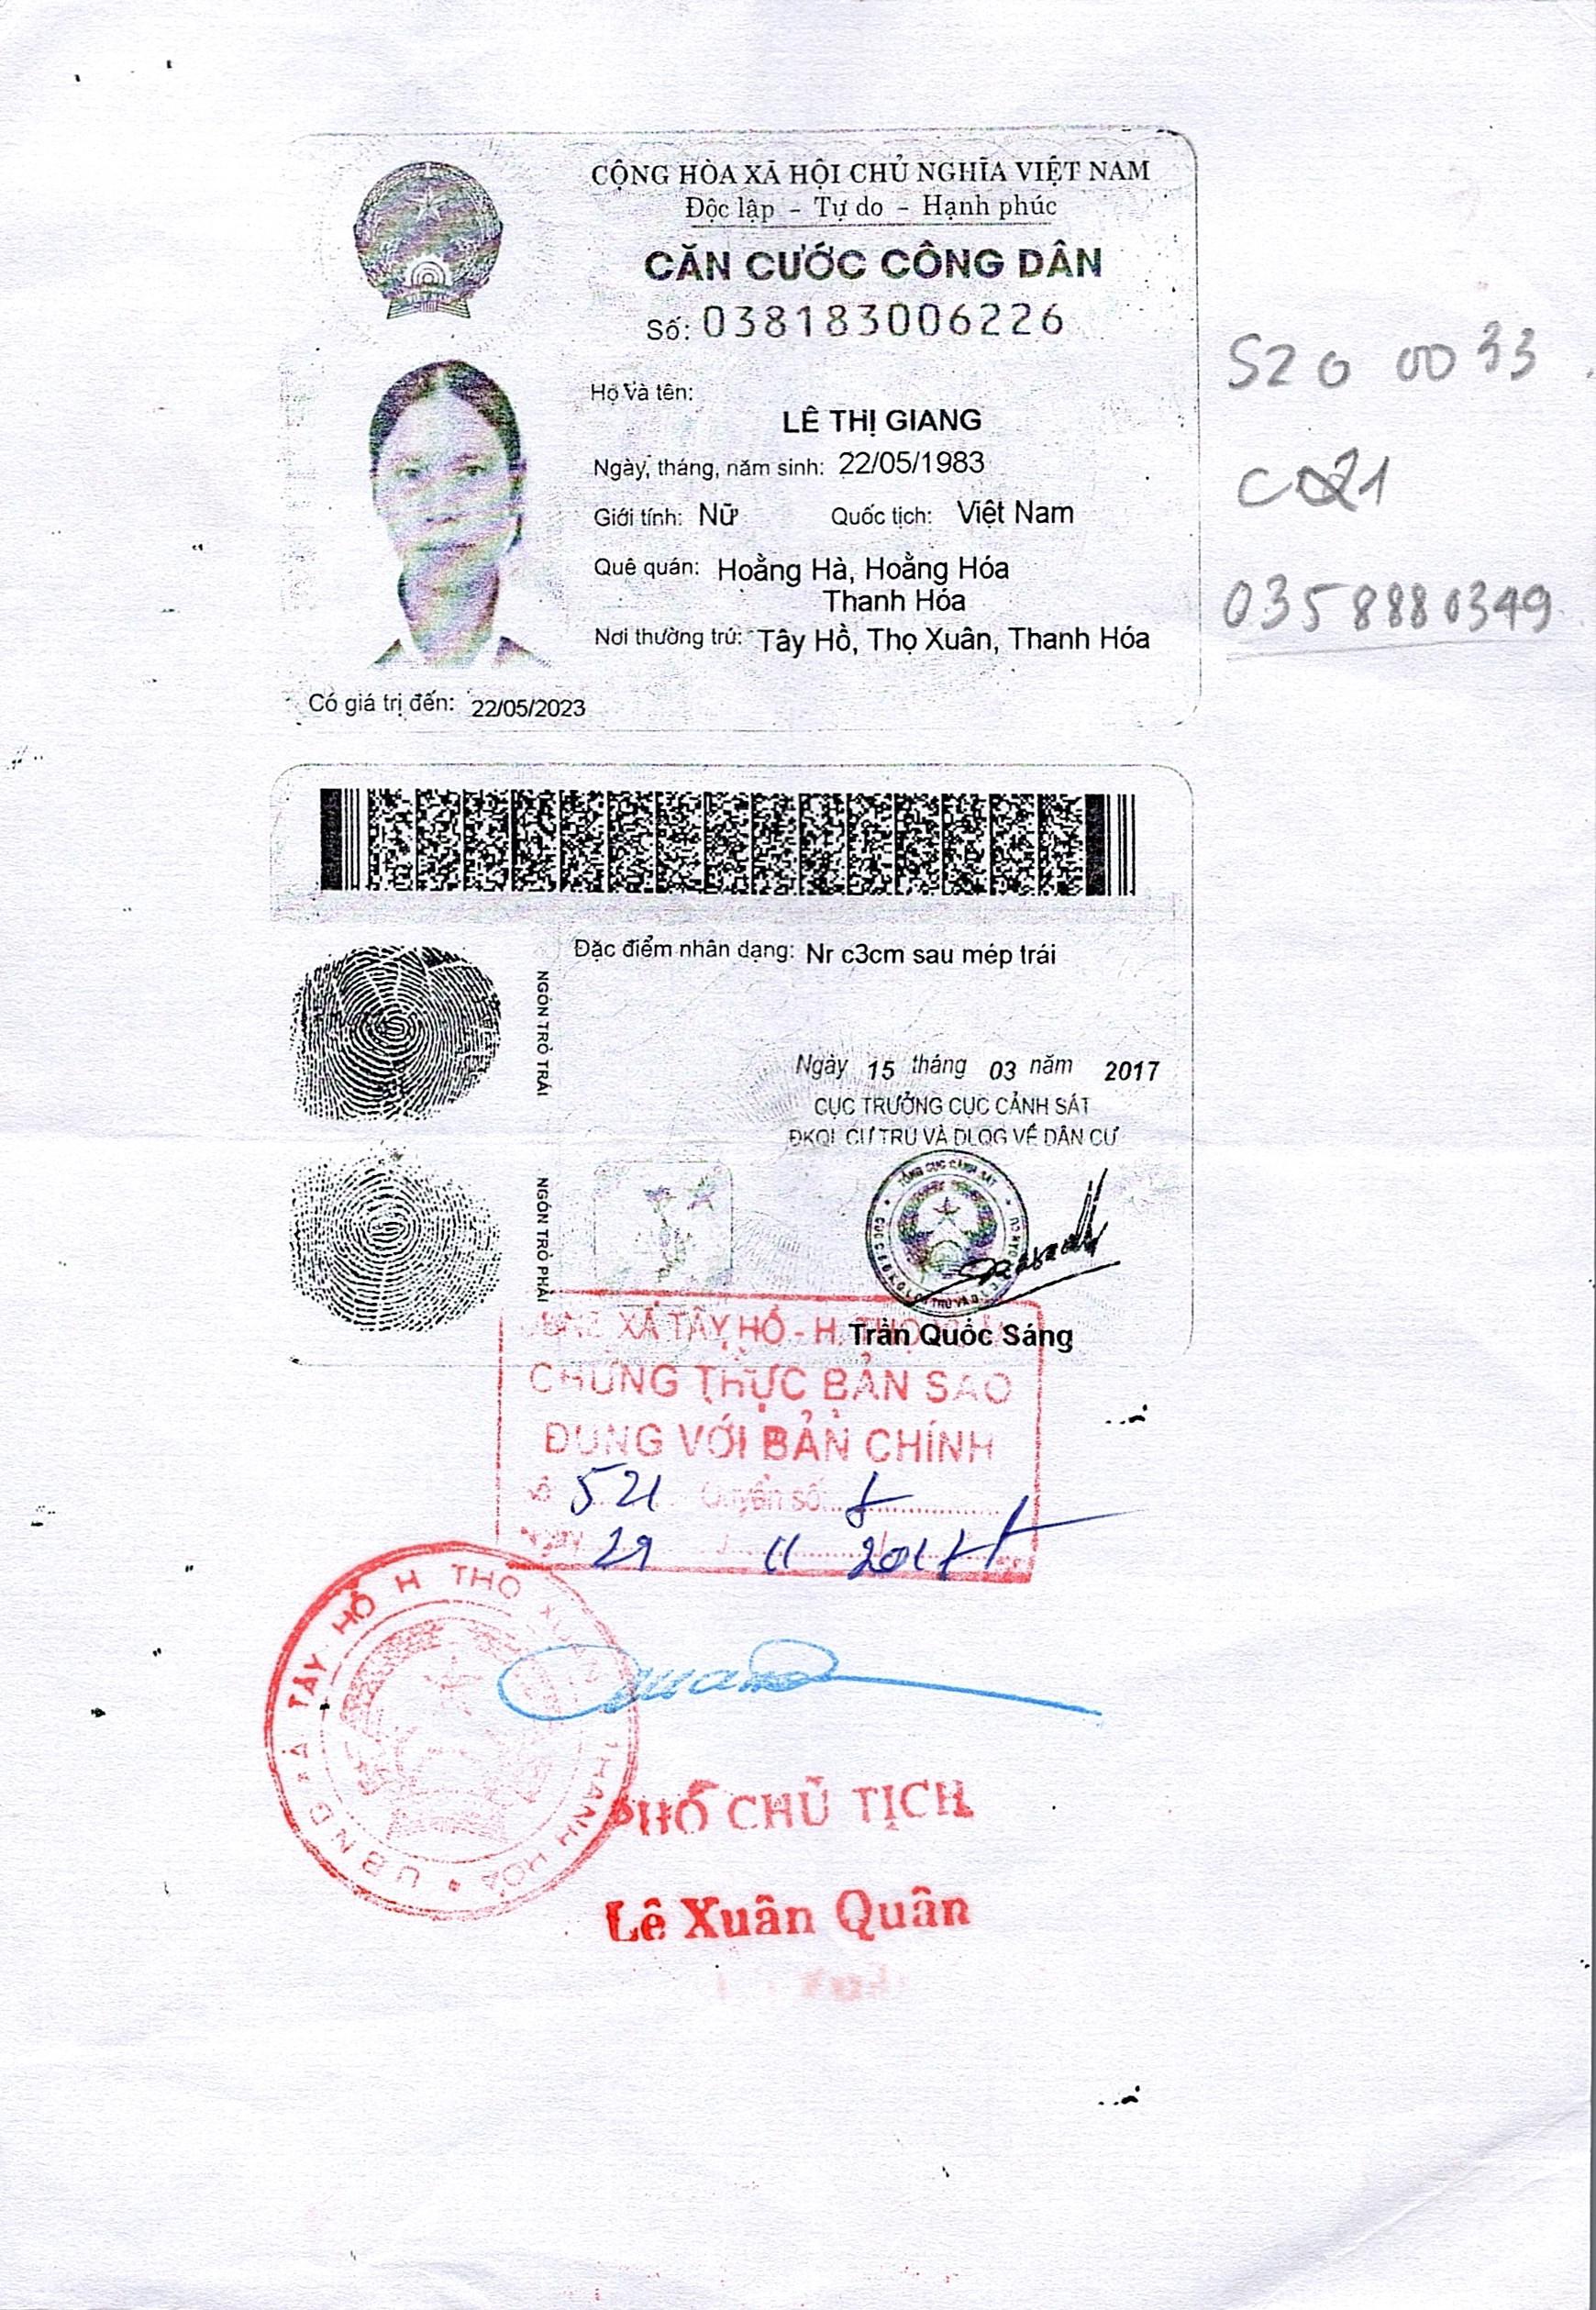 CỘNG HÒA XÃ HỘI CHỦ NGHĨA VIỆT NAM
Độc lập - Tự do - Hạnh phúc
CĂN CƯỚC CÔNG DÂN
Số: 038183006226
Họ và tên:
LÊ THỊ GIANG
Ngày, tháng, năm sinh: 22/05/1983
Giới tính: Nữ Quốc tịch: Việt Nam
Quê quán: Hoằng Hà, Hoằng Hóa
Thanh Hóa
Nơi thường trú: Tây Hồ, Thọ Xuân, Thanh Hóa
Có giá trị đến: 22/05/2023
S20 0033
CQ21
0358880349
Đặc điểm nhân dạng: Nr c3cm sau mép trái
NGÓN TRỎ TRÁI
NGÓN TRỎ PHẢI
Ngày 15 tháng 03 năm 2017
CỤC TRƯỞNG CỤC CẢNH SÁT
ĐKQL CƯ TRÚ VÀ DLQG VỀ DÂN CƯ
TỔNG CỤC CẢNH SÁT
Trần Quốc Sáng
UBND XÃ TÂY HỒ - H. THỌ
CHỨNG THỰC BẢN SAO
ĐÚNG VỚI BẢN CHÍNH
Số 521 Quyển số:
29 11
UBND XÃ TÂY HỒ H THỌ XUÂN THANH HÓA
PHÓ CHỦ TỊCH
Lê Xuân Quân